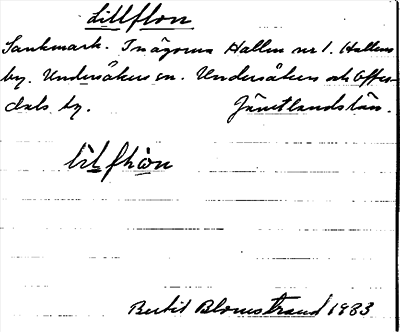 Lillflon
Sankmark. I ägorna Hallen nr 1. Hallens
by. Undersåkers sn. Undersåkers och Offer-
dals tg. Jämtlands län.
Bertil Blomstrand 1933